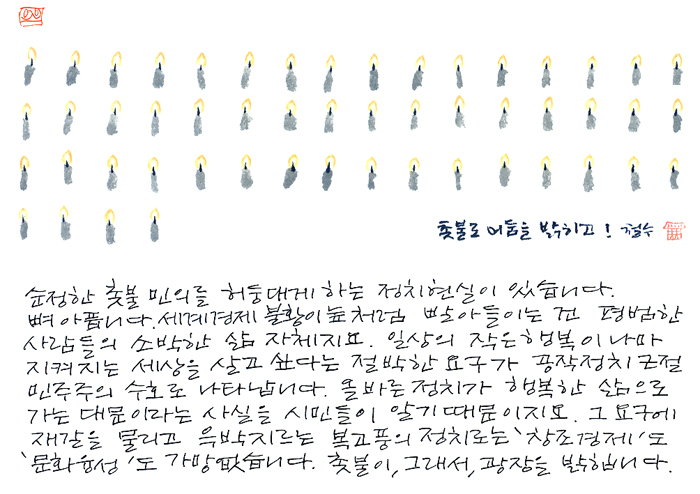 촛불로 어둠을 밝히고! 철수
순정한 촛불 민의를 허둥대게 하는 정치현실이 있습니다.
뼈아픕니다. 세계경제 불황이 늪처럼 빨아들이는 건 평범한
사람들의 소박한 삶 자체지요. 일상의 작은 행복이나마
지켜지는 세상을 살고 싶다는 절박한 요구가 공작정치 근절
민주주의 수호로 나타납니다. 올바른 정치가 행복한 삶으로
가는 대문이라는 사실을 시민들이 알기 때문이지요. 그 요구에
재갈을 물리고 윽박지르는 복고풍의 정치로는 '창조경제'도
'문화융성'도 가망없습니다. 촛불이, 그래서, 광장을 밝힙니다.